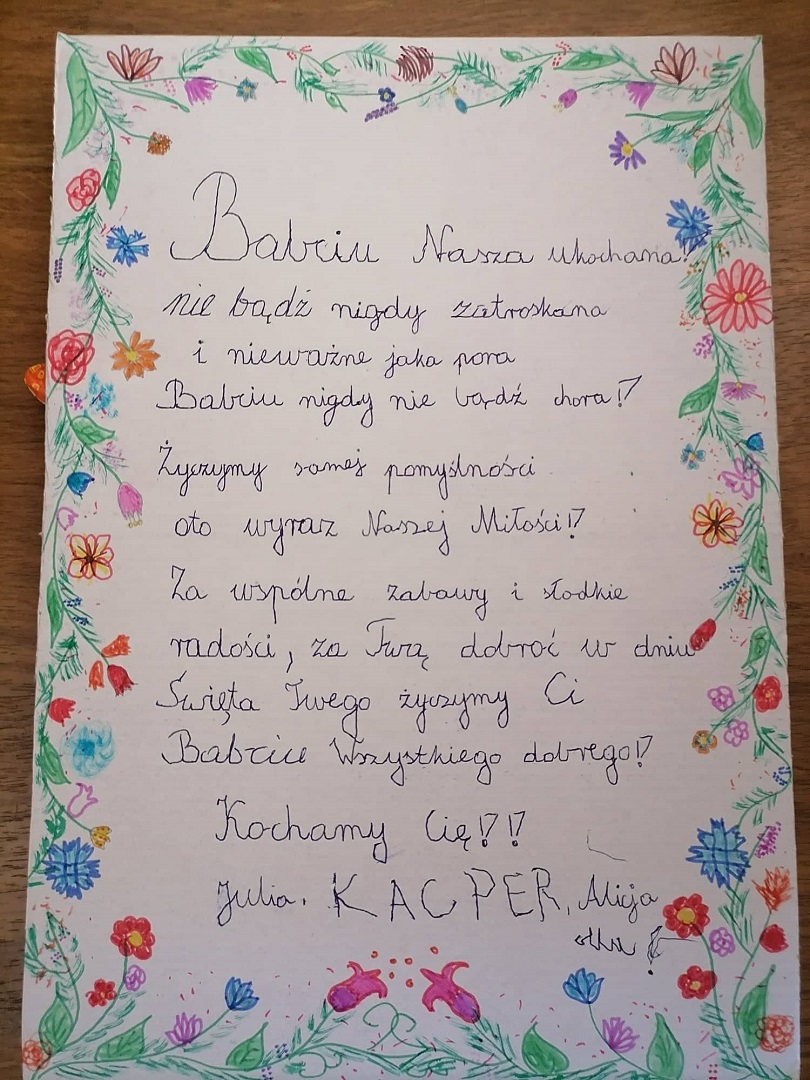 Babciu Nasza ukochana!
nie bądź nigdy zatroskana
i nieważne jaka pora
Babciu nigdy nie bądź chora!!
Życzymy samej pomyślności
oto wyraz Naszej Miłości!!
Za wspólne zabawy i słodkie
radości, za Twą dobroć w dniu
Święta Twego życzymy Ci
Babciu Wszystkiego dobrego!!
Kochamy Cię!!!
Julia, KACPER, Alicja